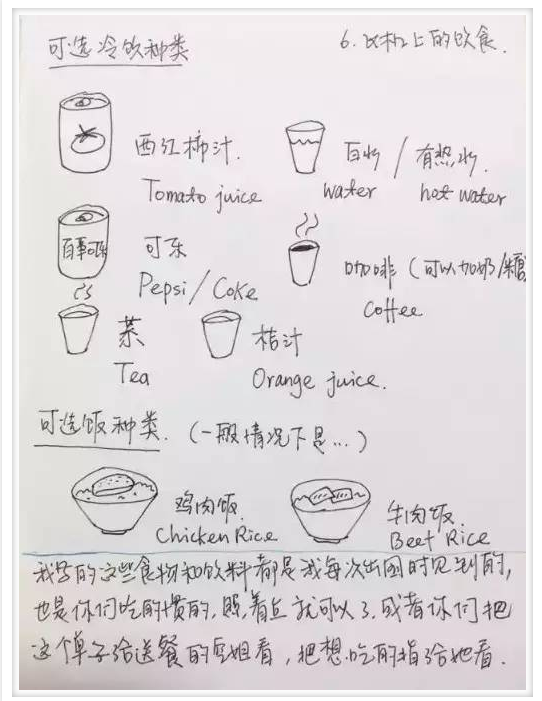 可选冷饮种类
6.飞机上的饮食.
西红柿汁.
Tomato juice
白水/有热水.
water
hot water
百事可乐
可乐
Pepsi/Coke
咖啡(可以加奶/糖
Coffee
茶
Tea
桔汁
Orange juice.
可选饭种类.(一般情况下是...)
鸡肉饭.
Chicken Rice
牛肉饭.
Beef Rice
我写的这些食物和饮料都是我每次出国时见到的,
也是你们吃的惯的,照着点就可以了.或者你们把
这个单子给送餐的空姐看,把想吃的指给她看.